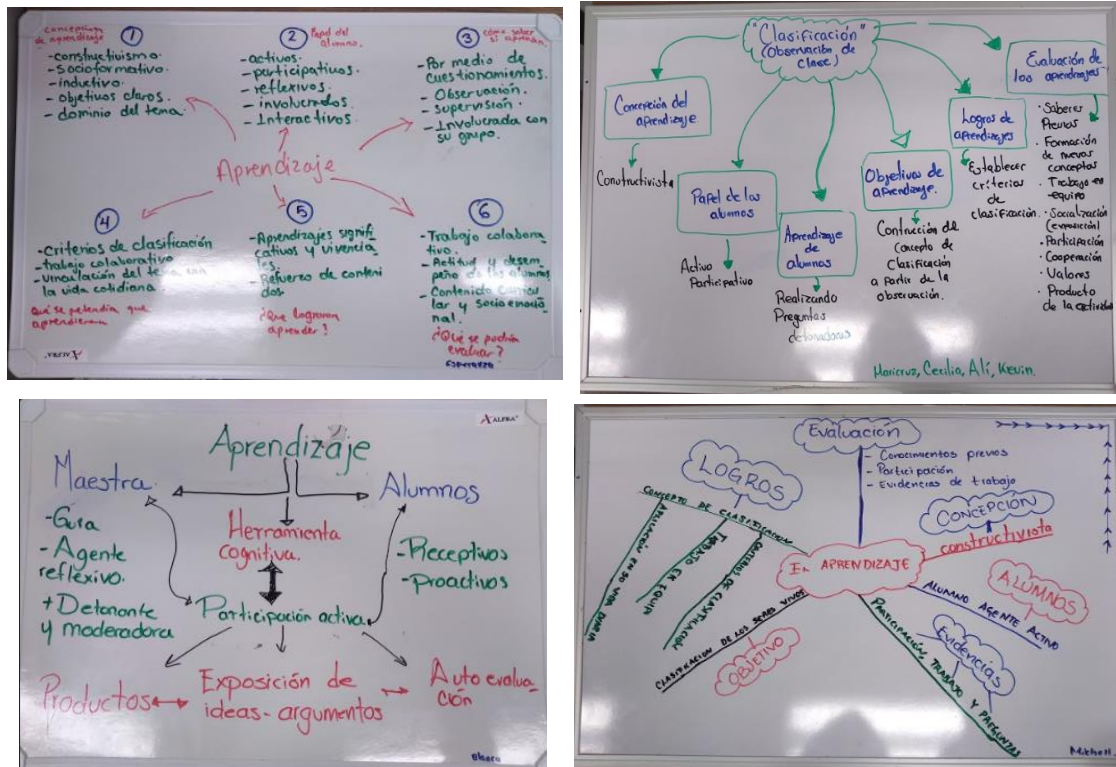 concepcion
de aprendizaje
1
-constructivismo.
-Socioformativo.
-inductivo.
- objetivos claros.
- dominio del tema.
2
Papel del
alumno.
-activos.
-participativos.
- reflexivos.
- involucrados.
- Interactivos.
3
cómo saber
si aprenden.
-Por medio de
cuestionamientos.
- Observación.
- supervisión.
- Involucrada con
su grupo.
Aprendizaje
4
-Criterios de clasificación
-trabajo colaborativo
-Vinculación del tema con
la vida cotidiana.
Qué se pretendía que
aprendieran
5
-Aprendizajes signifi
cativos y vivencia
les.
- Refuerzo de conteni
dos
¿Que lograron
aprender?
6
-Trabajo colabora
tivo.
- Actitud y desem
peño de los alumnos
- Contenido curricu
lar y socioemocio
nal.
¿Qué se podría
evaluar?
Esperanza
ALFRA
"Clasificación"
(Observación de
clase)
Concepción del
aprendizaje
Constructivista
Papel de los
alumnos
Activo
Participativo
Aprendizaje de
alumnos
Realizando
Preguntas
detonadoras
Objetivos de
aprendizaje.
Contrucción del
Concepto de
Clasificación
a partir de la
observación.
Logros de
aprendizajes
Establecer
criterios
de
clasificación.
Evaluación de
los aprendizajes
· Saberes
Previos
· Formación
de nuevos
conceptos
· Trabajo en
equipo
· Socialización
(exposición)
· Participación
· Cooperación
· Valores
· Producto
de la actividad
Maricruz, Cecilia, Alí, Kevin.
ALFRA
Aprendizaje
Maestra.
-Guía
- Agente
reflexivo.
+ Detonante
y moderadora
Herramienta
cognitiva.
Participación activa.
Alumnos
-Receptivos
-Proactivos
Productos
Exposición de
ideas- argumentos
Auto evalua-
ción
Evaluación
- Conocimientos previos
- Participación
- Evidencias de trabajo
LOGROS
CONCEPTO DE CLASIFICACIÓN
APLICACIÓN EN SU VIDA DIARIA
TRABAJO EN EQUIPO
CRITERIOS DE CLASIFICACIÓN
CONCEPCIÓN
constructivista
EL APRENDIZAJE
ALUMNOS
ALUMNO AGENTE ACTIVO
Evidencias
PARTICIPACIÓN, TRABAJO Y PREGUNTAS
CLASIFICACION DE LOS SERES VIVOS
OBJETIVO